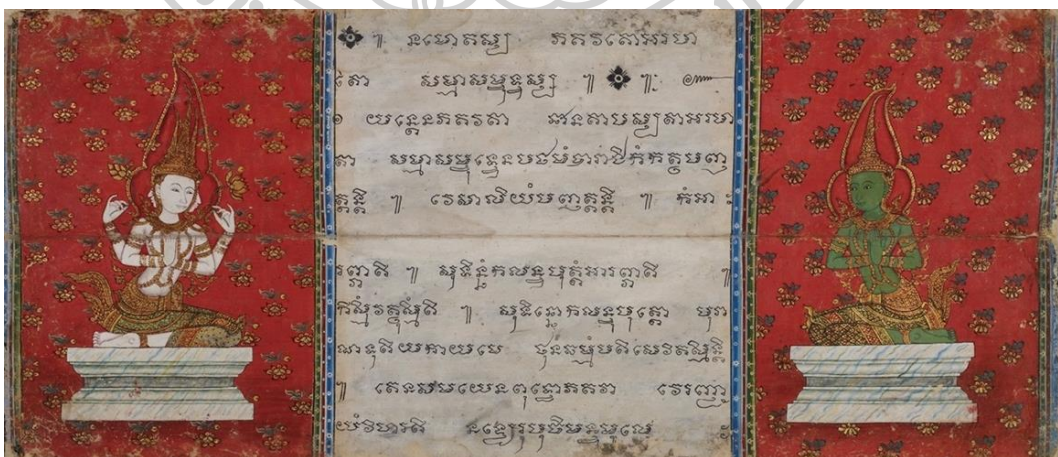 ៕ នមោតស្ស ភគវតោអរហ
តោ សម្មាសម្ពុទ្ធស្ស ៕
១ យន្តេនភគវតា ជានតាបស្សតាអរហ
តា សម្មាសម្ពុទ្ធេនបឋមំបារាជិកំកត្ថបញ្ញ
ត្តន្តិ ៕ វេសាលិយំបញ្ញត្តន្តិ ៕ កំអា
រព្ភាតិ ៕ សុទិន្នំកលន្ទបុត្តំអារព្ភាតិ ៕
កិស្មិំវត្ថុស្មិំតិ ៕ សុទិន្នោកលន្ទបុត្តោ បុរា
ណទុតិយិកាយមេ ថុនំធម្មំបតិសេវិតស្មិន្តិ
៕ តេនសមយេនពុទ្ធោភគវា វេរញ្ជា
យំវិហរតិ នឡេរុបុចិមន្ទមូលេ